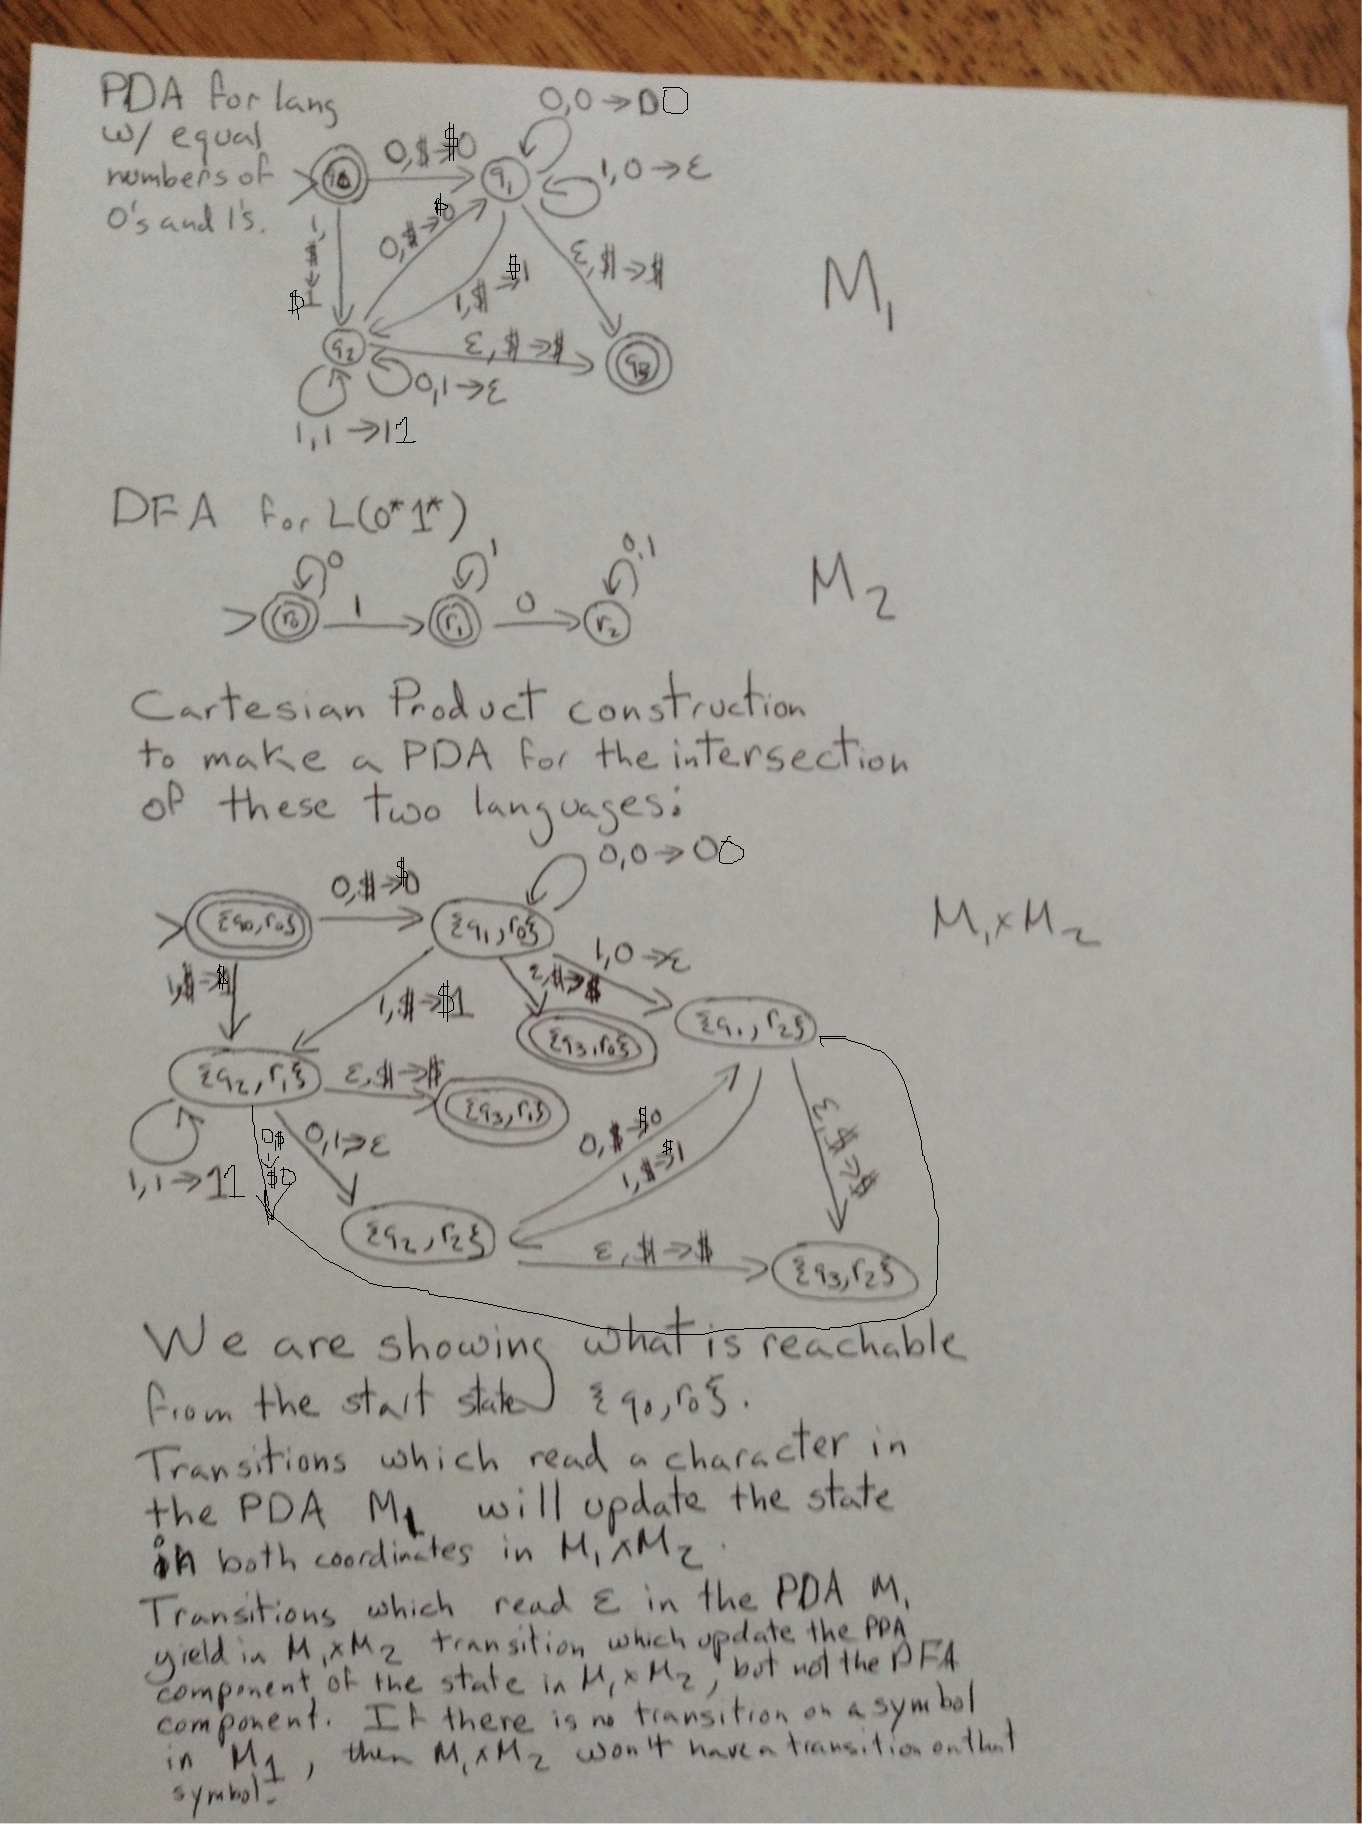 PDA for lang
w/ equal
numbers of
0's and 1's.
0,0→00
0,$→$0
q0
q1
1,0→ε
1,
$
↓
$1
0,$→$0
1,$→$1
ε,$→$
M1
q2
ε,$→$
q3
0,1→ε
1,1→11
DFA for L(0*1*)
0
1
0,1
r0
1
r1
0
r2
M2
Cartesian Product construction
to make a PDA for the intersection
of these two languages:
0,0→00
0,$→$0
{q0,r0}
{q1,r0}
M1xM2
1,0→ε
1,$→$1
ε,$→$
{q1,r2}
{q3,r0}
{q2,r1}
ε,$→$
{q3,r1}
0,$
→
$0
0,1→ε
0,$→$0
1,$→$1
ε,$→$
1,1→11
{q2,r2}
ε,$→$
{q3,r2}
We are showing what is reachable
from the start state {q0,r0}.
Transitions which read a character in
the PDA M1 will update the state
in both coordinates in M1xM2.
Transitions which read ε in the PDA M1
yield in M1xM2 transition which update the PDA
component of the state in M1xM2, but not the DFA
component. If there is no transition on a symbol
in M1, then M1xM2 won't have a transition on that
symbol.